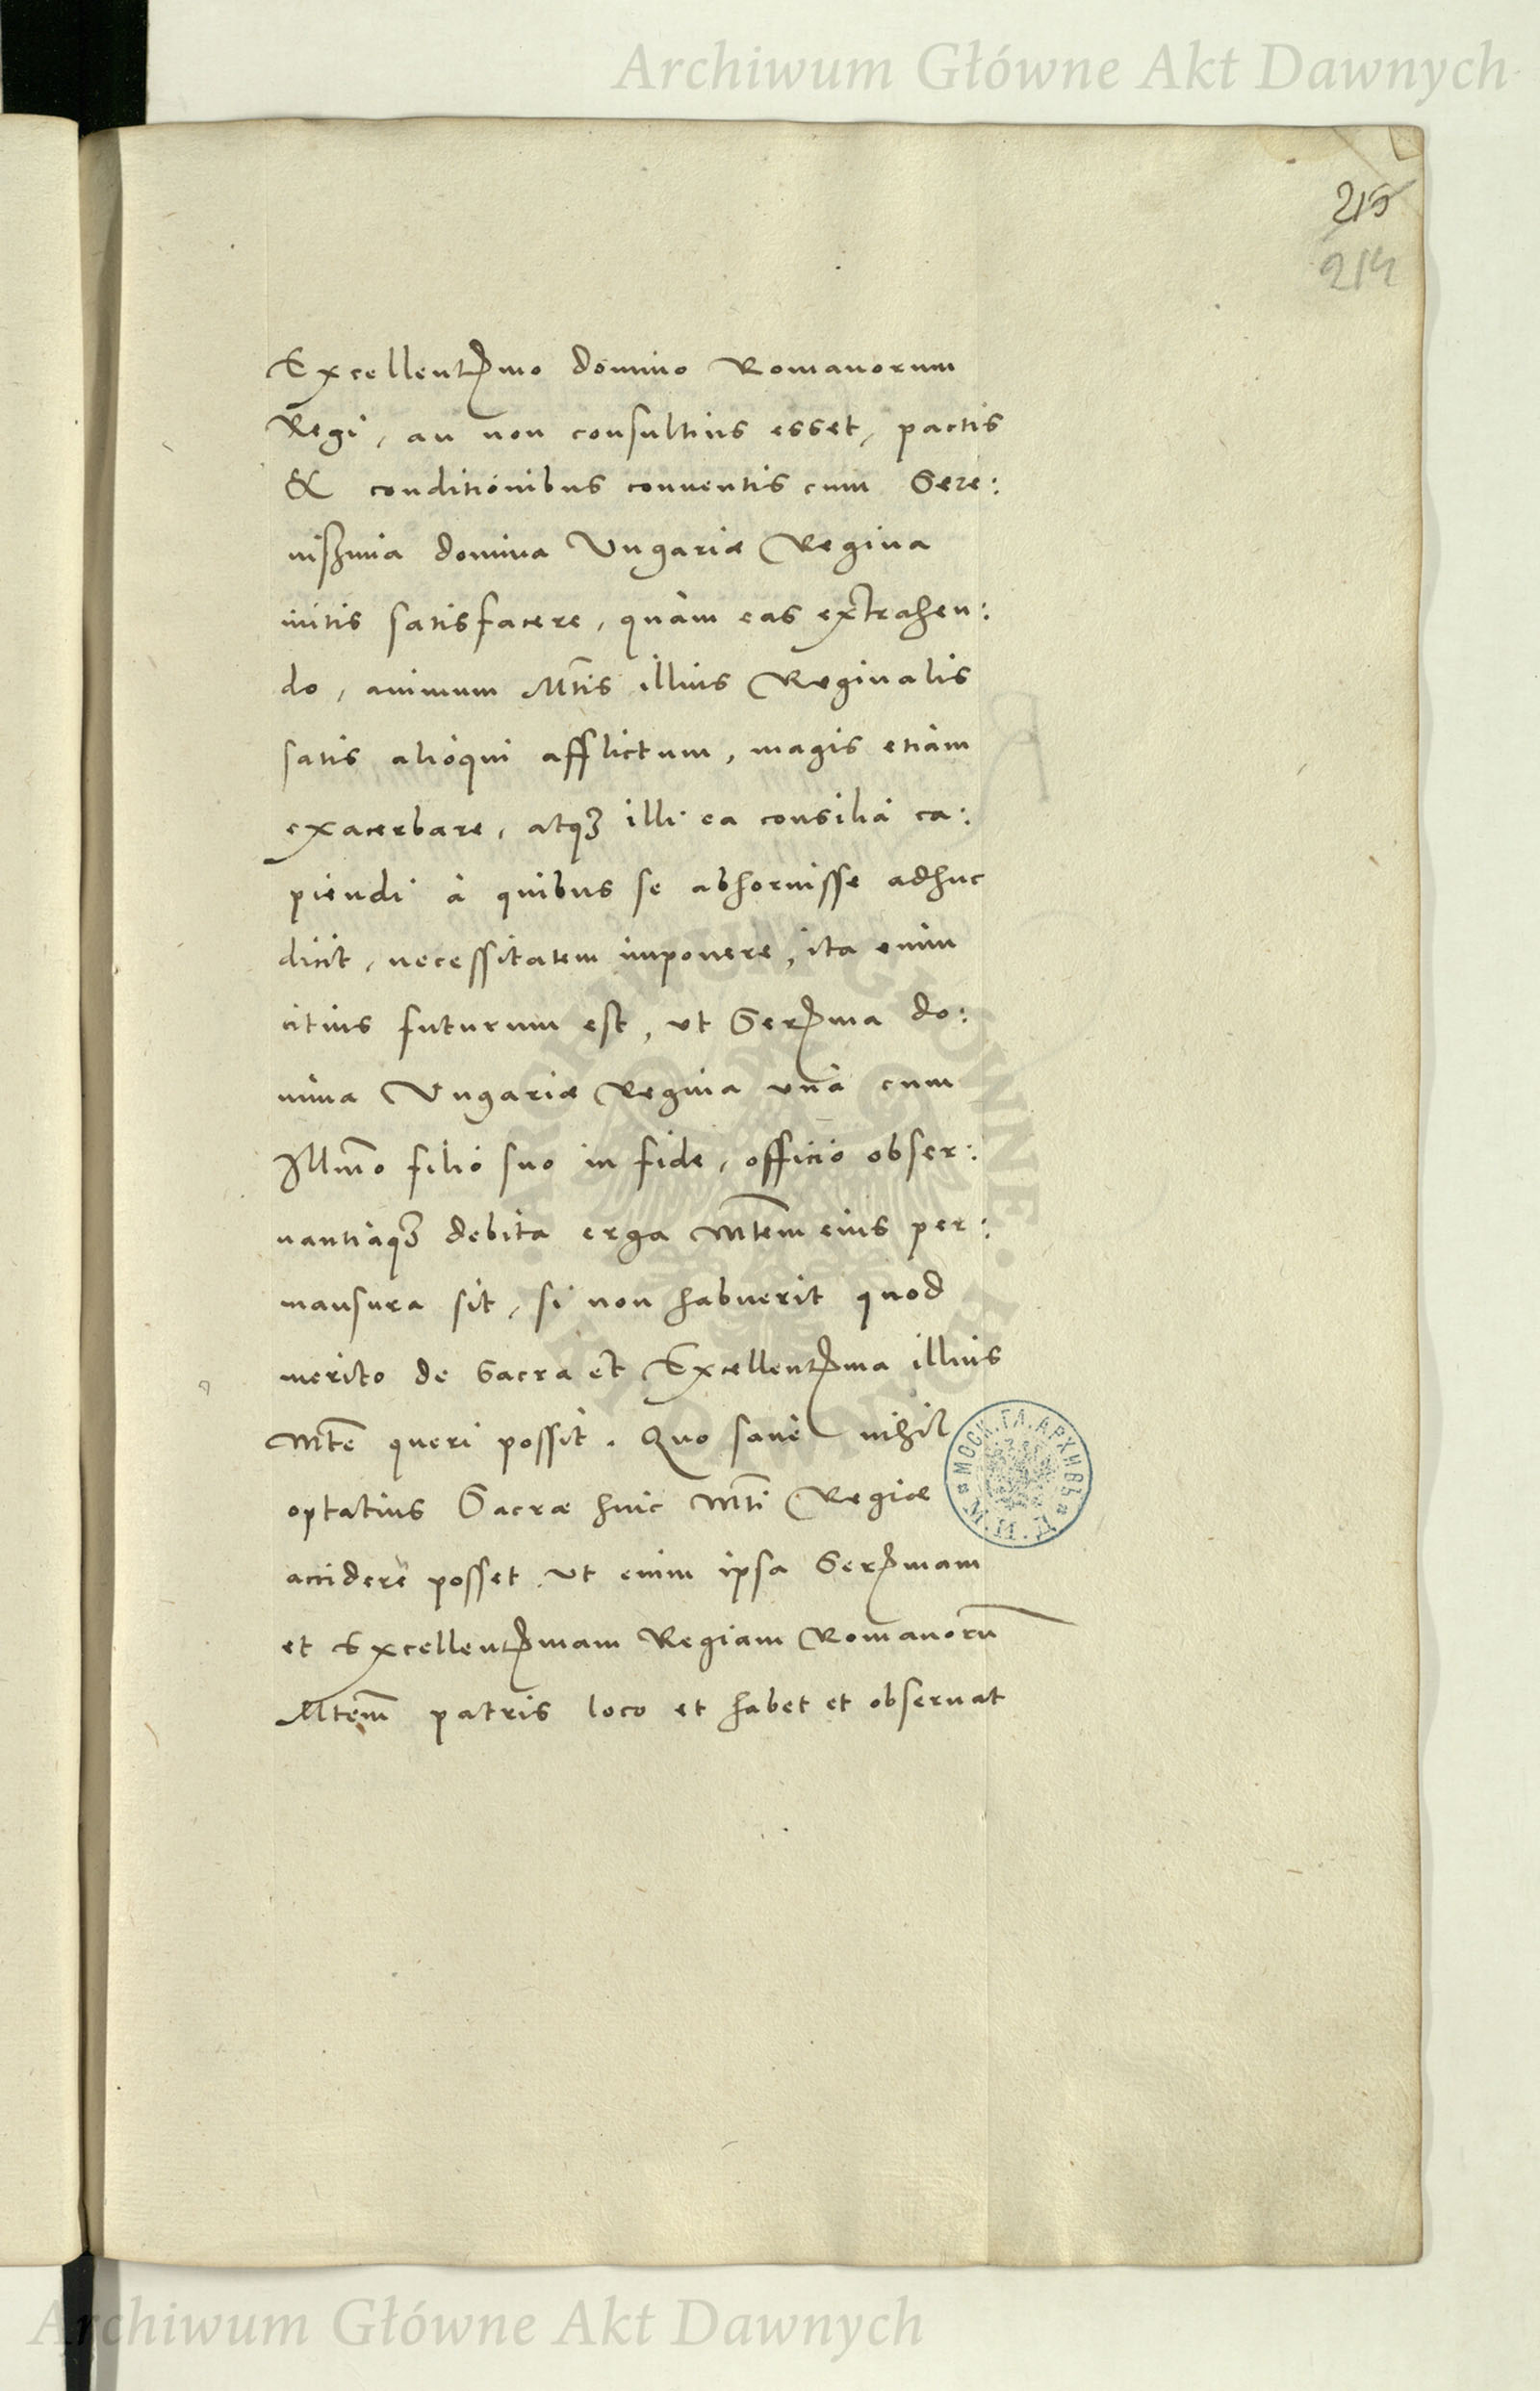 Archiwum Główne Akt Dawnych
215
214
Excellentissmo domino Romanorum
Regi, an non consultius esset, pactis
& conditionibus conuentis cum Sere:
nissima domina Vngariæ Regina
initis satisfacere, quàm eas extrahen:
do, animum Mtis illius Reginalis
satis alioqui afflictum, magis etiam
exacerbare, atqȝ illi ea consilia ca:
piendi à quibus se abhorruisse adhuc
dicit, necessitatem imponere, ita enim
citius futurum est, vt Serma do:
mina Vngariæ Regina vnà cum
Illmo filio suo in fide, officio obser:
uantiaqȝ debita erga Mtem eius per:
mansura sit, si non habuerit quod
merito de Sacra et Excellentma illius
Mte queri possit. Quo sanè nihil
optatius Sacræ huic Mti Regiæ
accidere posset, vt enim ipsa Sermam
et Excellentmam Regiam Romanorū
Mtem patris loco et habet et obseruat
МОСК. ГЛ. АРХИВЪ М.И.Д.
ARCHIWUM GŁÓWNE AKT DAWNYCH
Archiwum Główne Akt Dawnych